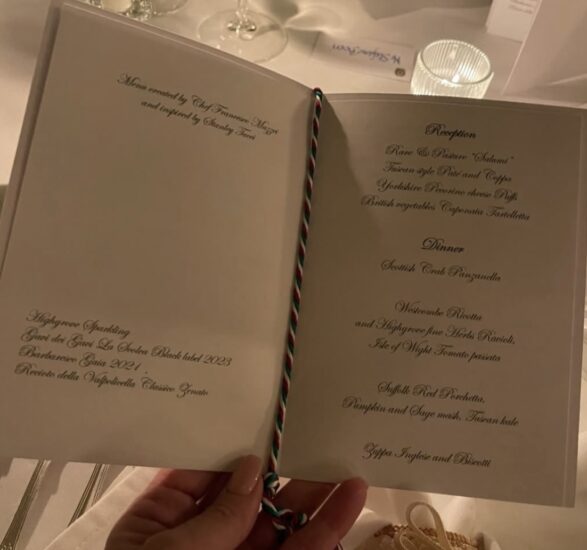 Menu created by Chef Francesco Mazzei
and inspired by Stanley Tucci
Highgrove Sparkling
Gavi dei Gavi La Scolca Black label 2023
Barbaresco Gaia 2021
Recioto della Valpolicella Classico Zenato
Reception
Rare & Pasture "Salumi"
Tuscan style Paté and Coppa
Yorkshire Pecorino cheese Puffs
British vegetables Caponata Tartelletta
Dinner
Scottish Crab Panzanella
Westcombe Ricotta
and Highgrove fine Herbs Ravioli,
Isle of Wight Tomato passata
Suffolk Red Porchetta,
Pumpkin and Sage mash, Tuscan kale
Zuppa Inglese and Biscotti